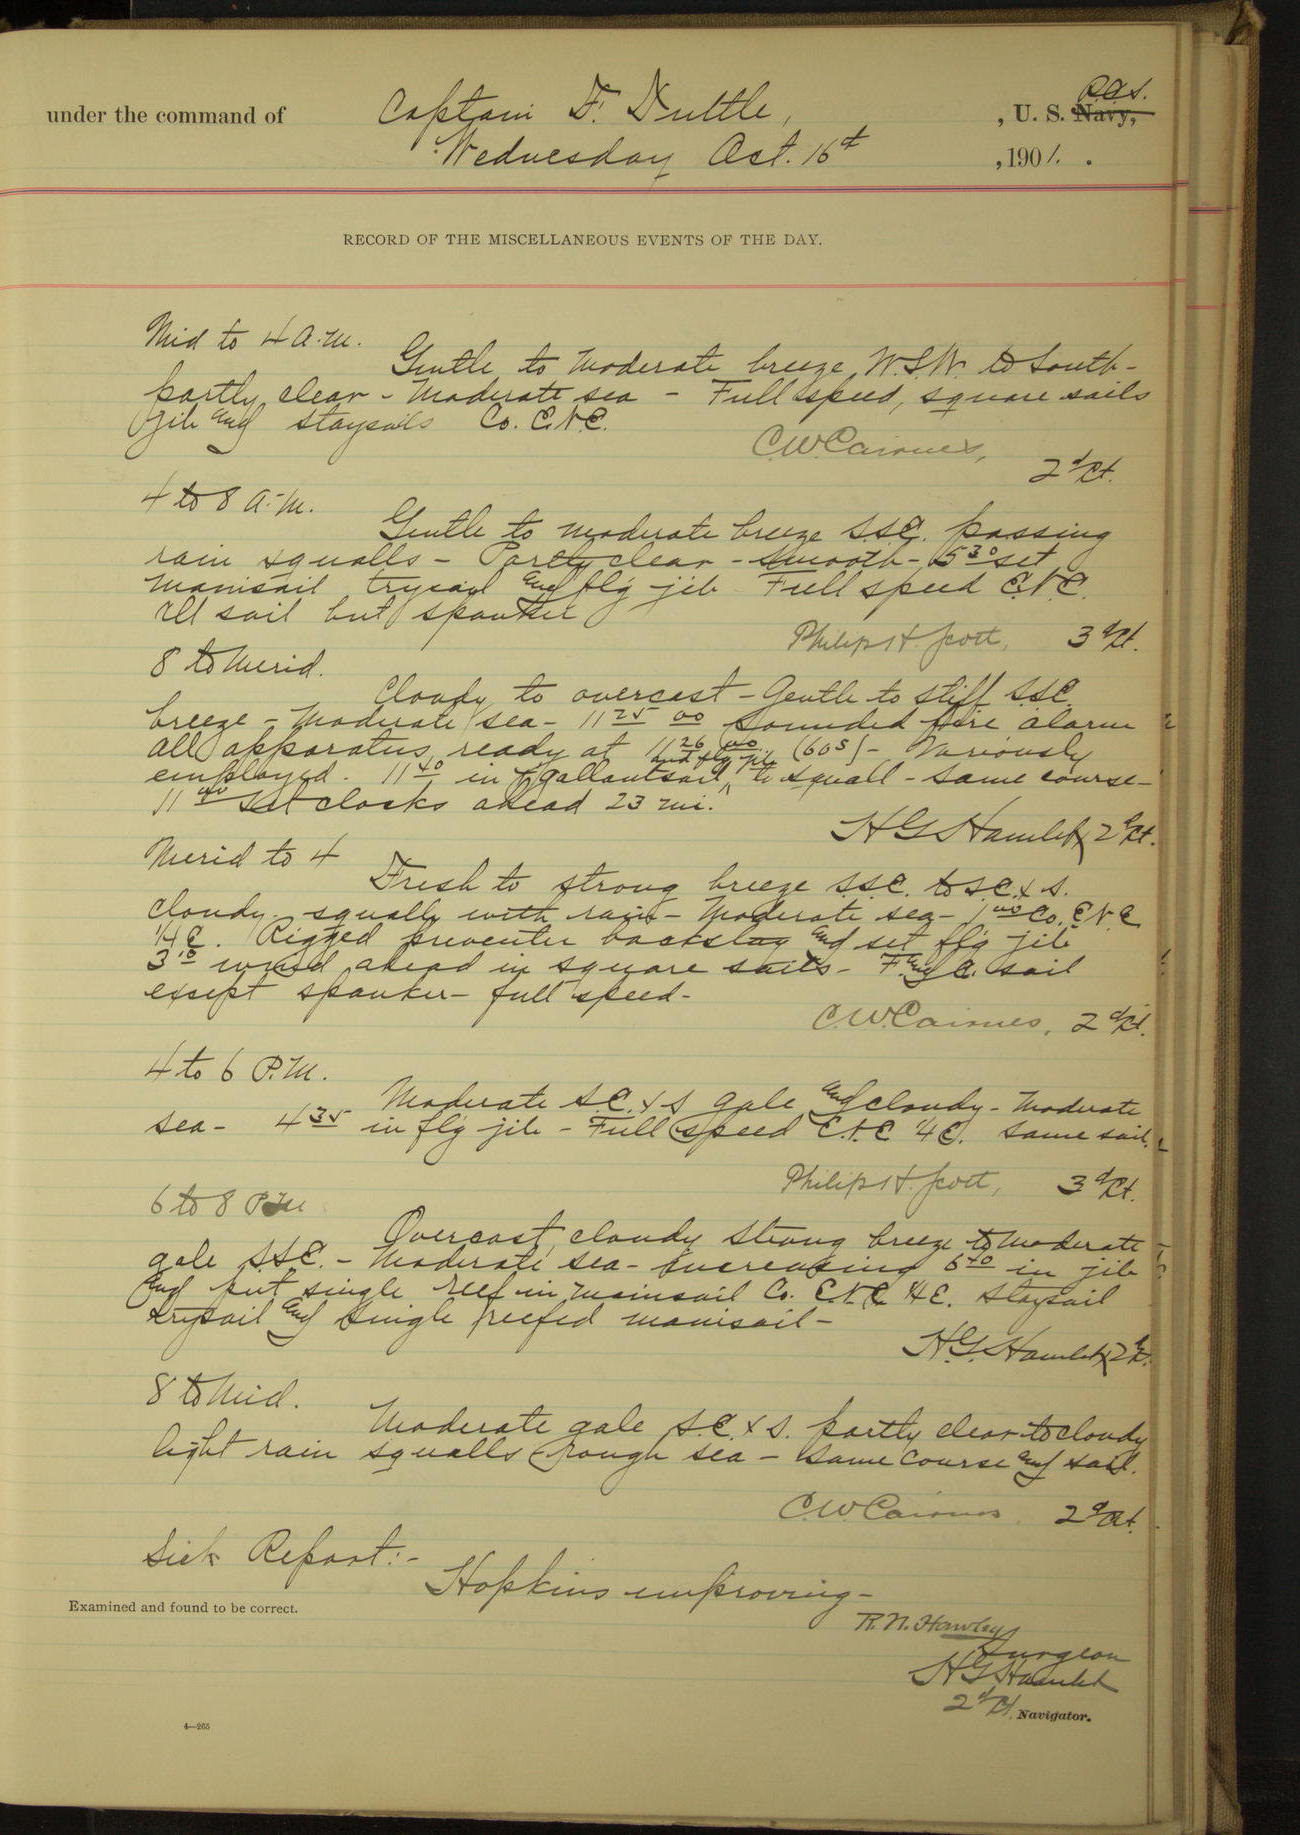 R.C.S.
under the command of Captain F. Tuttle, , U. S. Navy,
Wednesday Oct. 16th , 1901.
RECORD OF THE MISCELLANEOUS EVENTS OF THE DAY.
Mid to 4 A.M.
Gentle to moderate breeze W.S.W. to South -
partly clear - Moderate sea - Full speed, square sails
jib and staysails Co. E.N.E.
C.W. Cairnes,
2d Lt.
4 to 8 A.M.
Gentle to moderate breeze SSE. passing
rain squalls - Partly clear - smooth - 5 30 set
mainsail trysail and fl'g jib Full speed E.N.E.
All sail but spanker
Philip H. Scott, 3d Lt.
8 to Merid.
Cloudy to overcast - Gentle to stiff SSE
breeze - Moderate sea - 11 25 00 Sounded fire alarm
all apparatus ready at 11 26 00 (60s) - Variously
and fl'g jib
employed. 11 40 in gallantsail to squall - Same course -
11 40 Set clocks ahead 23 mi.
H G Hamlet 2d Lt.
Merid to 4
Fresh to strong breeze S.S.E. to S.E. x S.
cloudy. squally with rain - Moderate sea - 1 00 Co. E.N.E
1/4 E. Rigged preventer backstay and set fl'g jib
3 10 wind ahead in square sails - F. and A. sail
except spanker - full speed -
C.W. Cairnes, 2d Lt.
4 to 6 P.M.
Moderate S.E. x S gale and cloudy - Moderate
sea - 4 35 in fl'g jib - Full speed E.N.E 1/4 E. Same sail.
Philip H. Scott, 3d Lt.
6 to 8 P.M
Overcast cloudy strong breeze to moderate
gale S.S.E. - Moderate sea - increasing 6 40 in jib
and put single reef in mainsail Co. E.N.E. 1/4 E. Staysail
trysail and single reefed mainsail -
H.G. Hamlet 2d Lt.
8 to Mid.
Moderate gale S.E. x S. partly clear to cloudy
light rain squalls rough sea - Same course and sail.
C.W. Cairnes 2d Lt.
Sick Report: -
Hopkins improving -
Examined and found to be correct.
R.N. Hawley
Surgeon
H G Hamlet
2d Lt. Navigator.
4—265